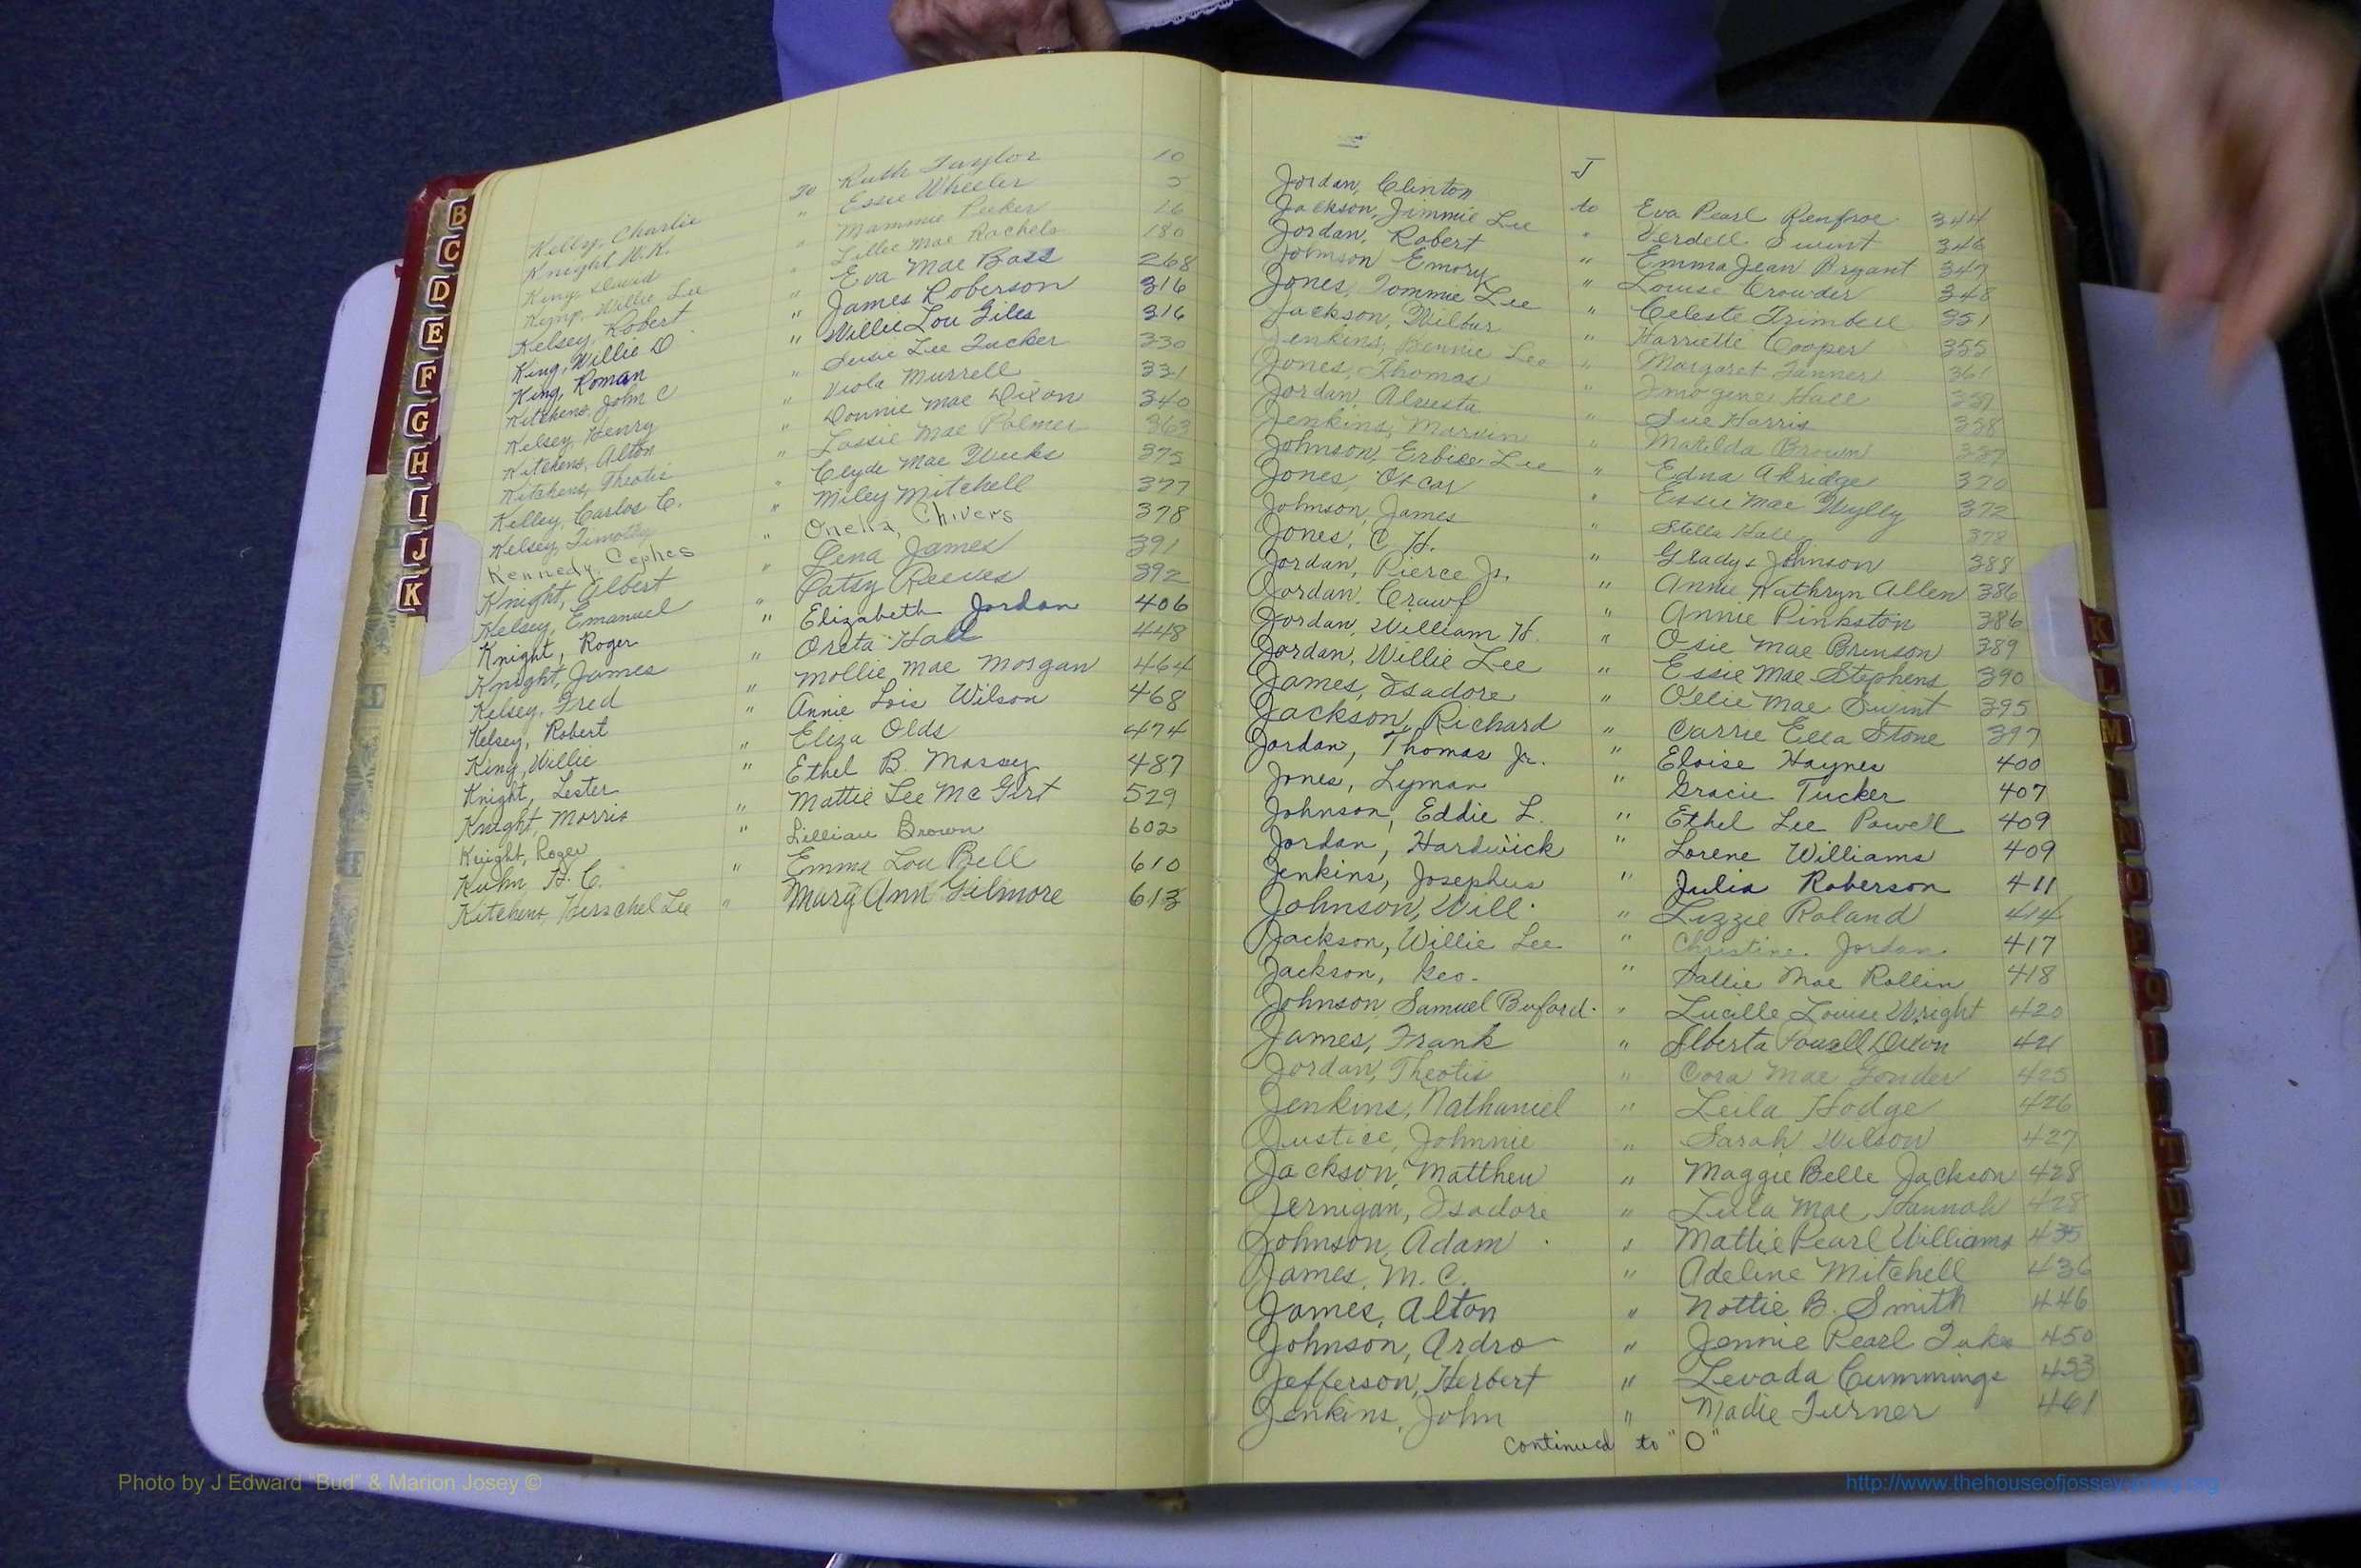 B
C
D
E
F
G
H
I
J
K
Kelly, Charlie To Ruth Taylor 10
Knight, W.K. " Essie Wheeler 5
King, David " Mammie Peeker 16
Kemp, Willie Lee " Lillie Mae Rachels 180
Kelsey, Robert " Eva Mae Bass 268
King, Willie D " James Roberson 316
King, Roman " Willie Lou Giles 316
Kitchens, John C " Susie Lee Tucker 330
Kelsey, Henry " Viola Murrell 331
Kitchens, Alton " Donnie Mae Dixon 340
Kitchens, Theotis " Lossie Mae Palmer 363
Kelley, Carlos C. " Clyde Mae Weeks 375
Kelsey, Timothy " Miley Mitchell 377
Kennedy, Cephes " Onella, Chivers 378
Knight, Albert " Lena James 391
Kelsey, Emanuel " Patsy Reeves 392
Knight, Roger " Elizabeth Jordan 406
Knight, James " Oreta Hall 448
Kelsey, Fred " Mollie Mae Morgan 464
Kelsey, Robert " Annie Lois Wilson 468
King, Willie " Eliza Olds 474
Knight, Lester " Ethel B. Massey 487
Knight, Morris " Mattie Lee McGirt 529
Knight, Roger " Lillian Brown 602
Kuhn, H. C. " Emma Lou Bell 610
Kitchens, Herschel Lee " Mary Ann Gilmore 613
J
Jordan, Clinton to Eva Pearl Renfroe 344
Jackson, Jimmie Lee " Verdell Swint 346
Jordan, Robert " Emma Jean Bryant 347
Johnson Emory " Louise Crowder 348
Jones, Tommie Lee " Celeste Trimbell 351
Jackson, Wilbur " Harriette Cooper 355
Jenkins, Bennie Lee " Margaret Tanner 361
Jones, Thomas " Imogene Hall 359
Jordan, Alvesta " Sue Harris 338
Jenkins, Marvin " Matilda Brown 337
Johnson, Erbice Lee " Edna Akridge 370
Jones, Oscar " Essie Mae Wylly 372
Johnson, James " Stella Hall 378
Jones, C H. " Gladys Johnson 388
Jordan, Pierce Jr. " Annie Kathryn Allen 386
Jordan, Crawf " Annie Pinkston 386
Jordan, William H. " Osie Mae Brinson 389
Jordan, Willie Lee " Essie Mae Stephens 390
James, Isadore " Ollie Mae Swint 395
Jackson, Richard " Carrie Ella Stone 397
Jordan, Thomas Jr. " Eloise Haynes 400
Jones, Lyman " Gracie Tucker 407
Johnson, Eddie L. " Ethel Lee Powell 409
Jordan, Hardwick " Lorene Williams 409
Jenkins, Josephus " Julia Roberson 411
Johnson, Will " Lizzie Roland 414
Jackson, Willie Lee " Christine Jordan 417
Jackson, Geo. " Sallie Mae Rollin 418
Johnson Samuel Buford " Lucille Louise Wright 420
James, Frank " Alberta Powell Dixon 421
Jordan, Theotis " Cora Mae Fonder 425
Jenkins, Nathaniel " Leila Hodge 426
Justice, Johnnie " Sarah Wilson 427
Jackson, Matthew " Maggie Belle Jackson 428
Jernigan, Isadore " Lula Mae Hannah 428
Johnson, Adam " Mattie Pearl Williams 435
James, M. C. " Adeline Mitchell 436
James, Alton " Nottie B. Smith 446
Johnson, Ardro " Jennie Pearl 450
Jefferson, Herbert " Levada Cummings 453
Jenkins, John " Madie Turner 461
Continued to "O"
K
L
M
Photo by J Edward "Bud" & Marion Josey ©
http://www.thehouseofjossey-josey.org